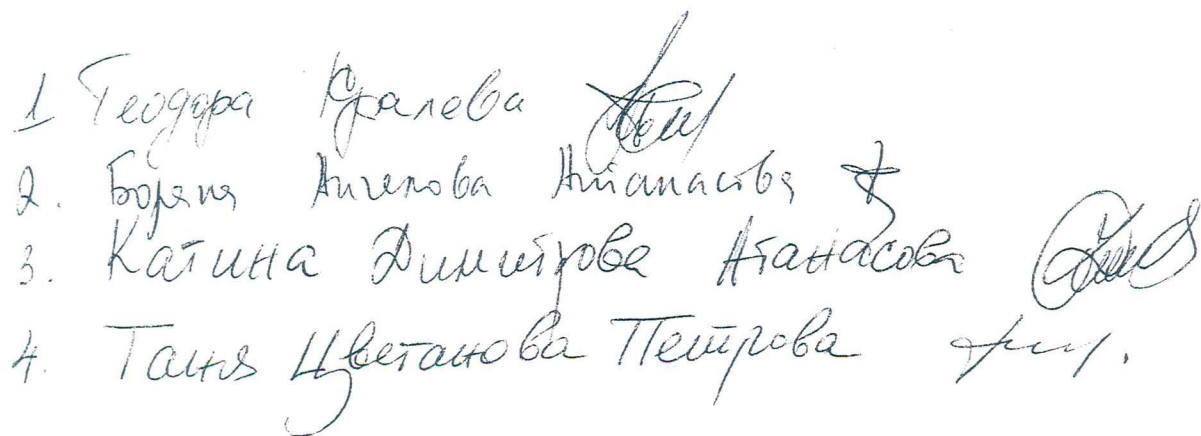 1 Теодора Кралева
2. Боряна Ангелова Атанасова
3. Катина Димитрова Атанасова
4. Таня Цветанова Петрова